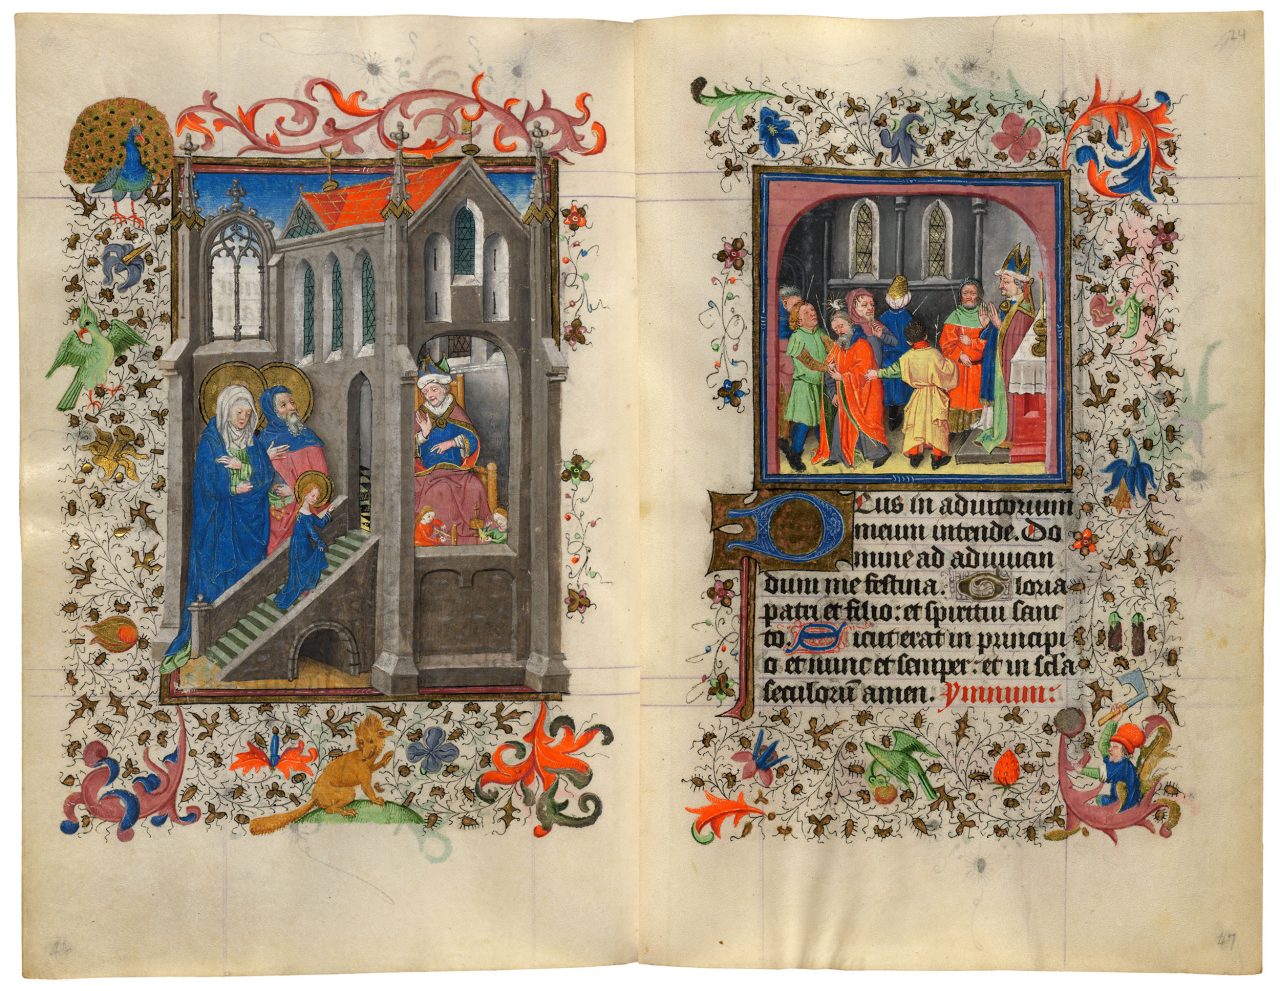 24
Deus in adiutorium
meum intende. Do
mine ad adiuuan
dum me festina. Gloria
patri et filio: et spiritui sanc
to. Sicut erat in principi
o et nunc et semper: et in scl̄a
seculorū amen. Ymnum:
47